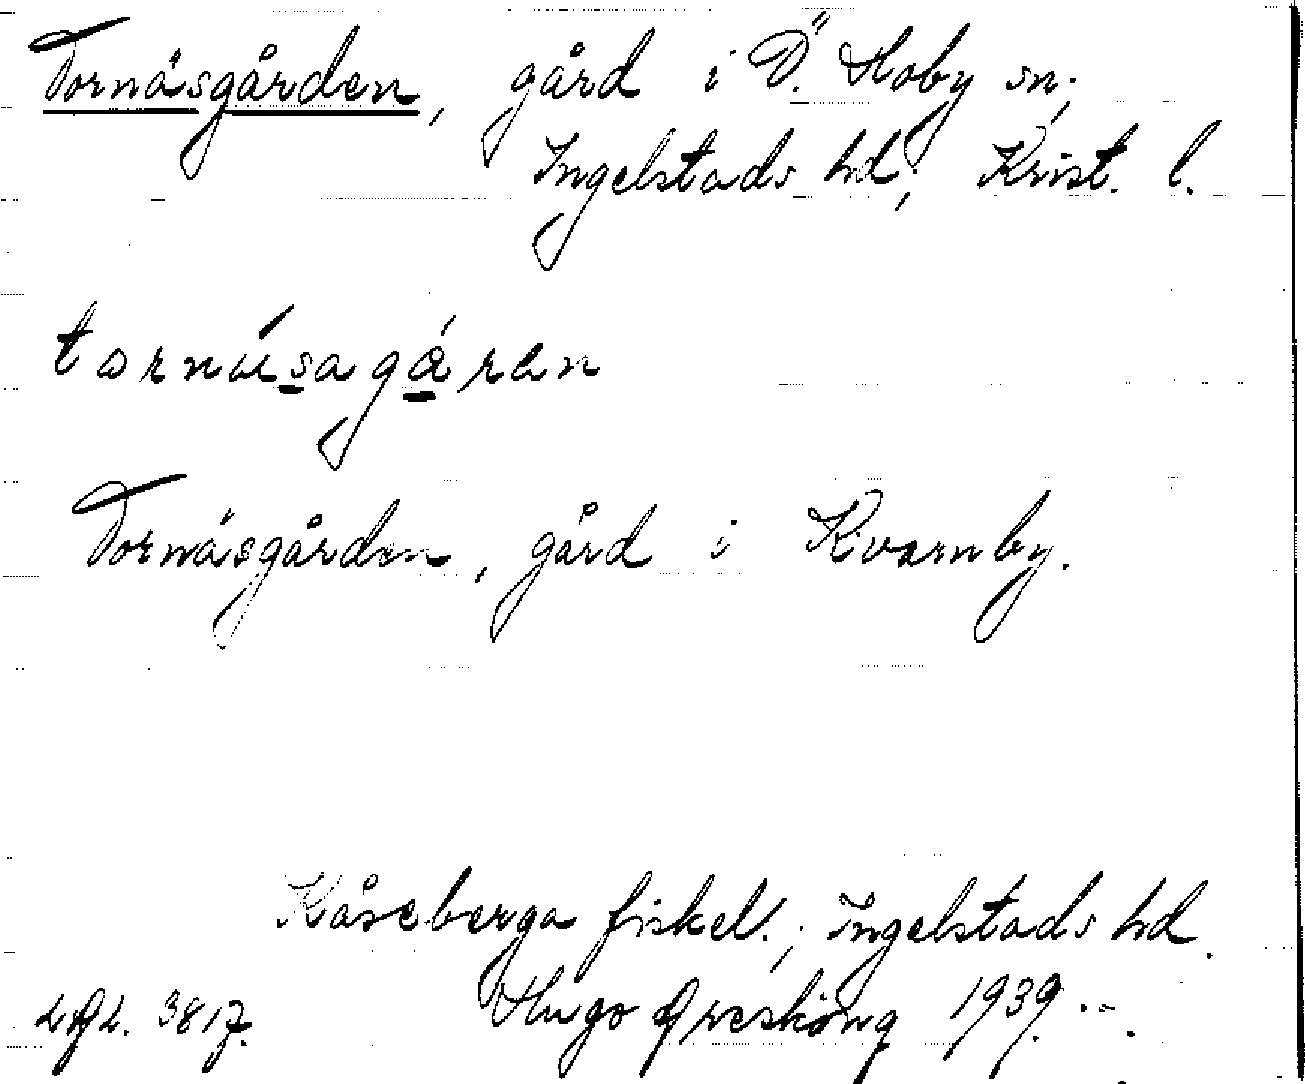 Tornåsgården, gård i Ö. Hoby sn,
Ingelstads hd, Krist. l.
tornásagáren
Tornåsgården, gård i Kvarnby.
Kåseberga fiskel., Ingelstads hd.
Hugo Areskoug 1939.
3817.